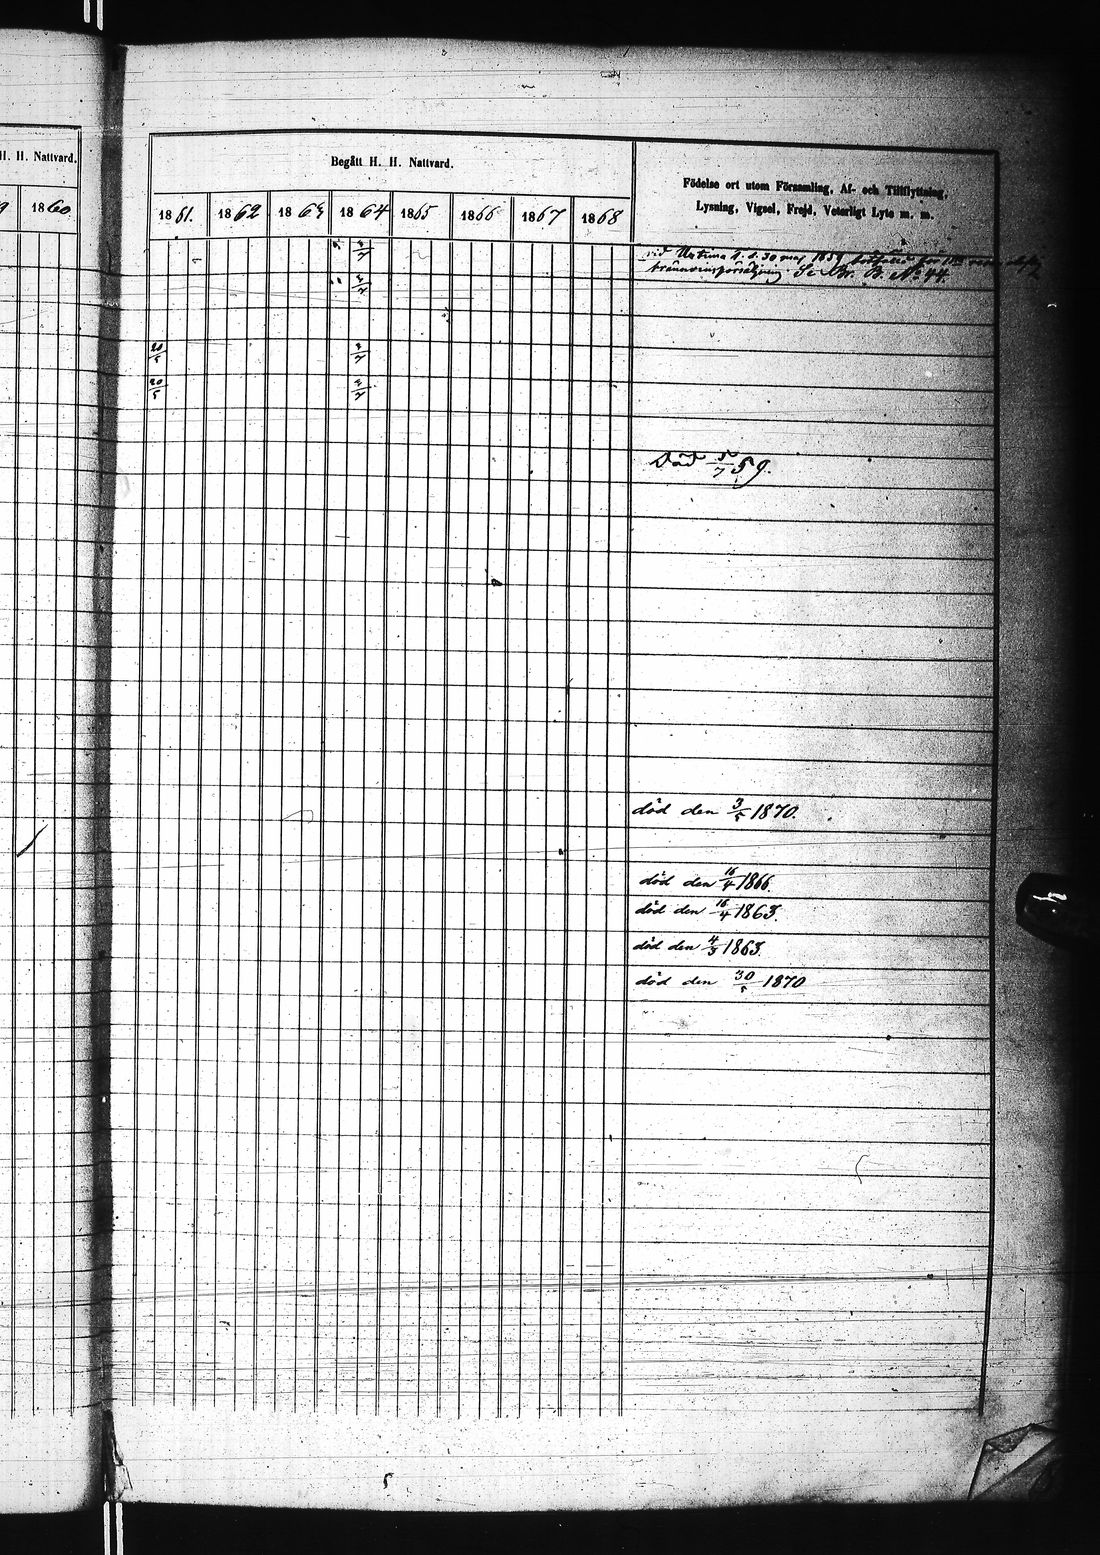 H. H. Nattvard.
1860
Begått H. H. Nattvard.
1861. 1862 1863 1864 1865 1866 1867 1868
Födelse ort utom Församling, Af- och Tillflyttning,
Lysning, Vigsel, Frejd, Veterligt Lyte m. m.
3/7
vid 30 maj 1859 för
bränvinsförsäljning Se Br. B. No 44.
3/7
20/5 3/7
20/5 3/7
Död 5/7 59.
död den 3/5 1870.
död den 16/4 1866.
död den 16/4 1863.
död den 4/3 1863.
död den 30/5 1870